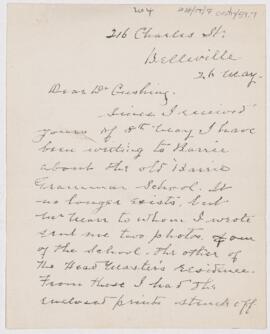 204
216 Charles St.
Belleville
26 May.
Dear Dr Cushing.
Since I received
yours of 8th May I have
been writing to Barrie
about the old Barrie
Grammar School. It
no longer exists, but
to whom I wrote
sent me two photos, one
of the School. The other of
the Head Master's residence.
From these I had the
enclosed prints struck off